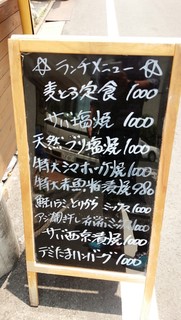 ☆ランチメニュー☆
麦とろ定食 1000
サバ塩焼 1000
天然ブリ塩焼 1000
特大シマホッケ焼 1000
特大赤魚粕漬焼 980
鮭ハラミ、とりから ミックス 1000
アジ開き
サバ西京焼 1000
デミたまハンバーグ 1000